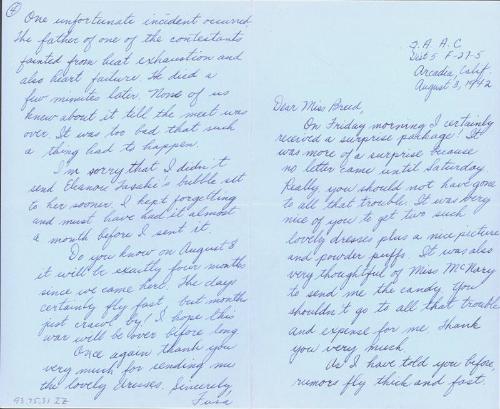 ④
One unfortunate incident occurred
the father of one of the contestants
fainted from heat exhaustion and
also heart failure. He died a
few minutes later. None of us
knew about it till the meet was
over. It was too bad that such
a thing had to happen.
I'm sorry that I didn't
send Eleanore bubble set
to her sooner. I kept forgetting
and must have had it almost
a month before I sent it.
Do you know on August 8
it will be exactly four months
since we came here. The days
certainly fly fast, but months
just crawl by! I hope this
war will be over before long
Once again thank you
very much for sending me
the lovely dresses. Sincerely
93.75.31 ZZ
S. A. A. C.
Dist 5 F-27-5
Arcadia, Calif.
August 3, 1942
Dear Miss Breed,
On Friday morning I certainly
received a surprise package! It
was more of a surprise because
no letter came until Saturday.
Really you should not have gone
to all that trouble. It was very
nice of you to get two such
lovely dresses plus a nice picture
and powder puffs. It was also
very thoughtful of Miss McNary
to send me the candy. You
shouldn't go to all that trouble
and expense for me. Thank
you very much.
As I have told you before,
rumors fly thick and fast.